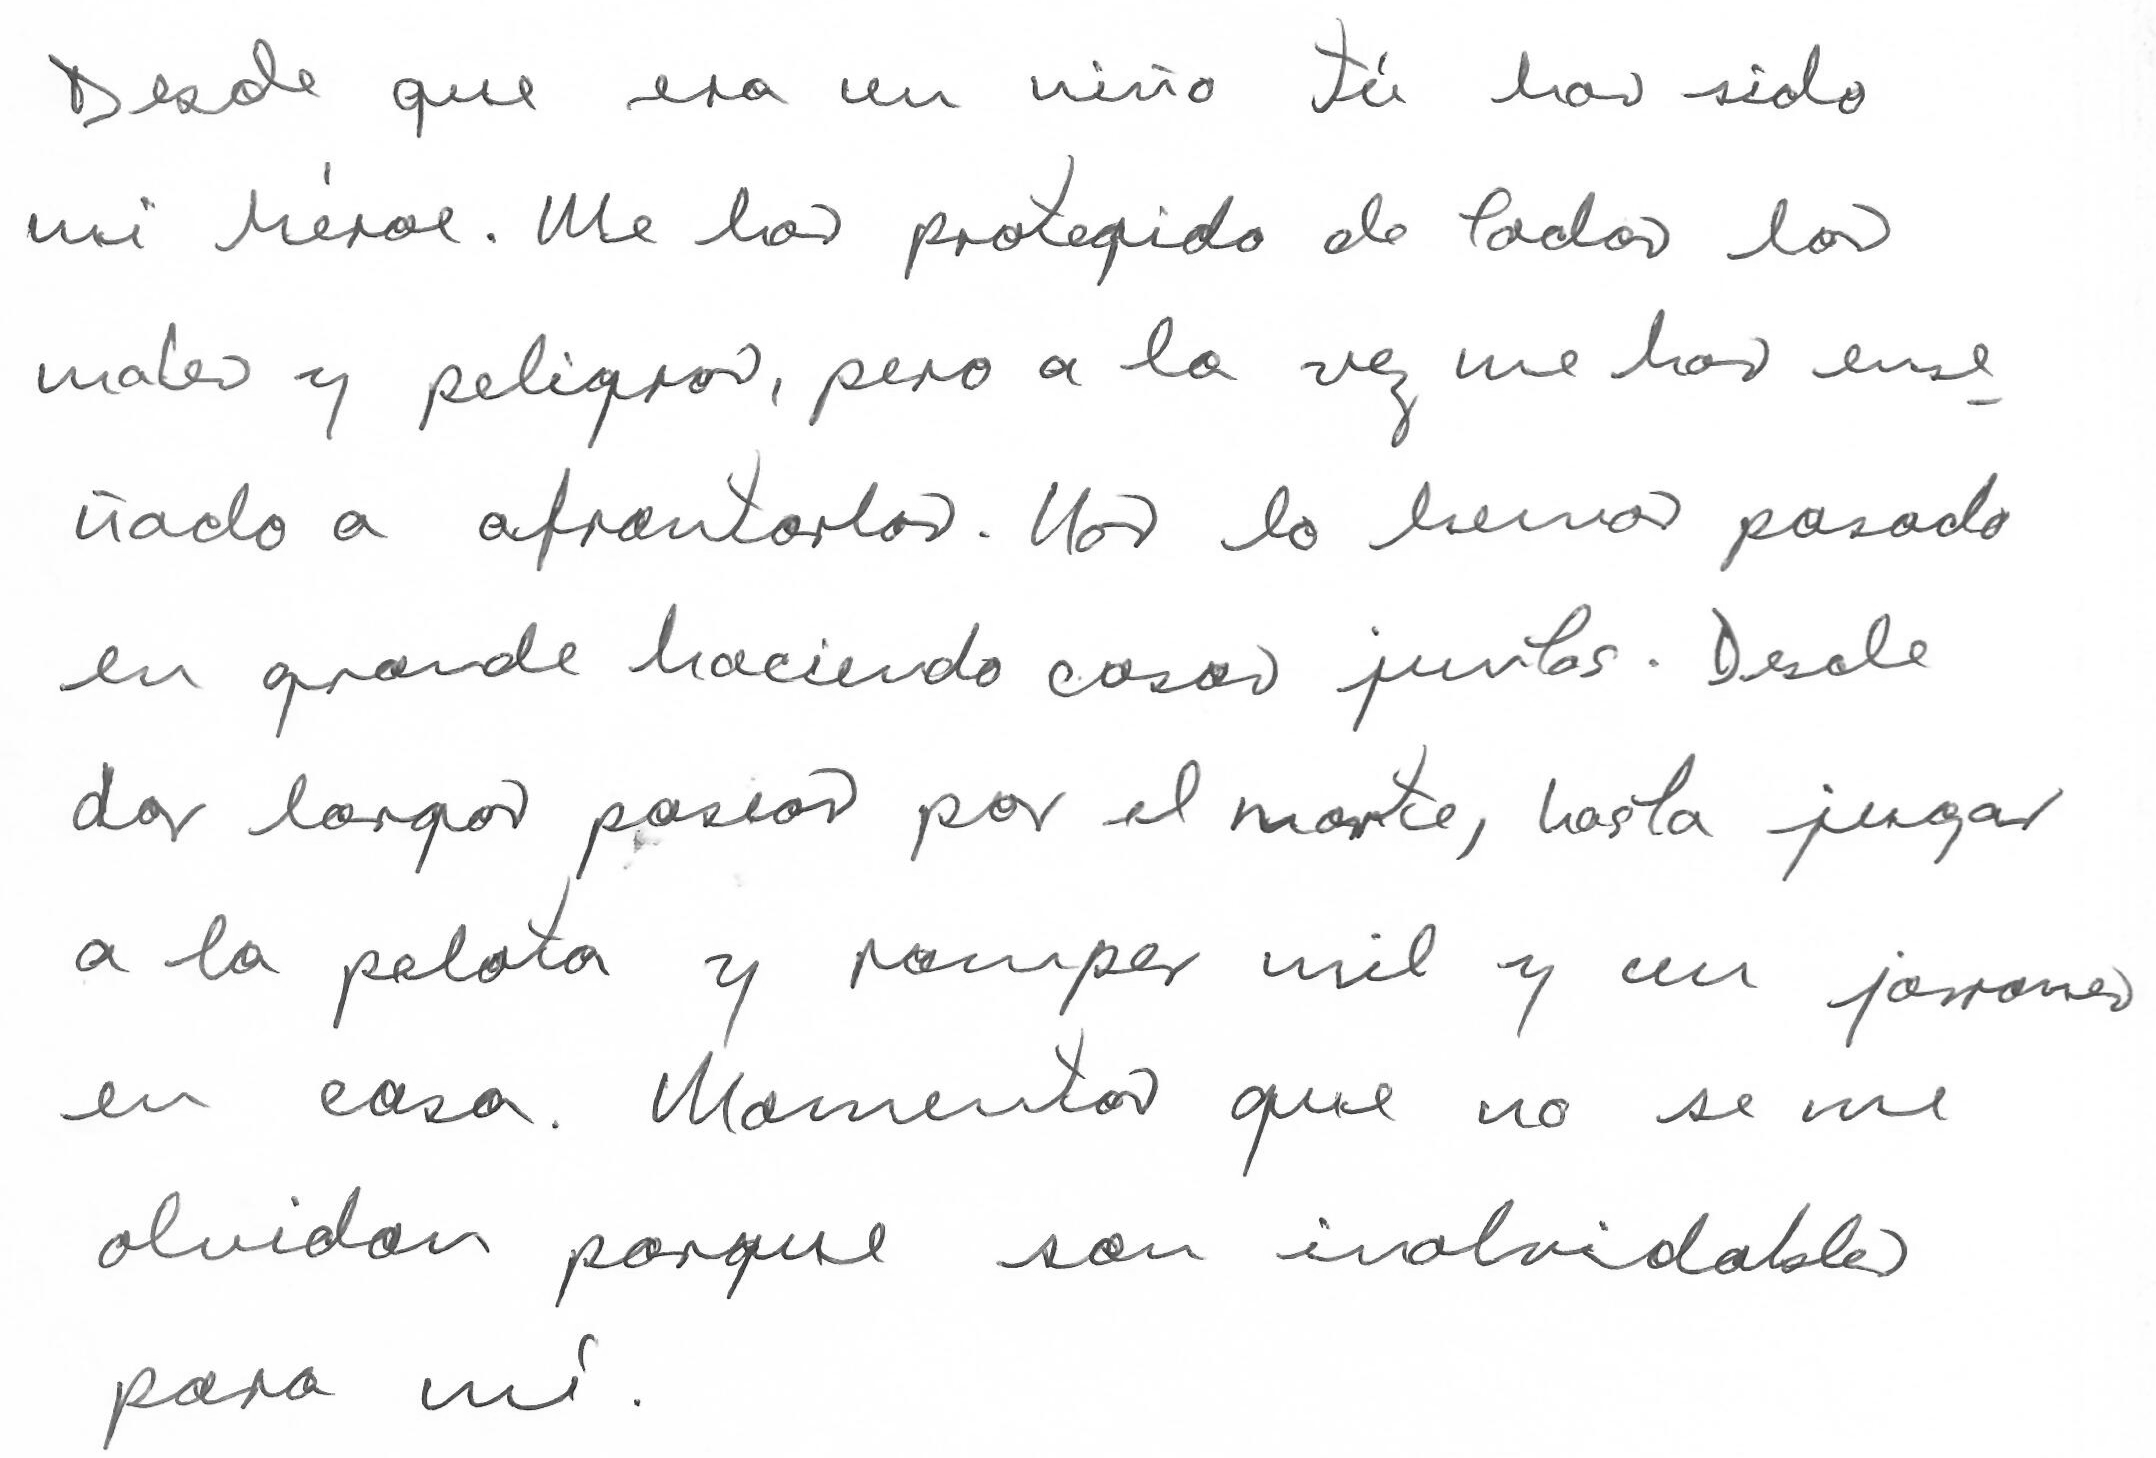 Desde que era un niño tú has sido
mi héroe. Me has protegido de todos los
males y peligros, pero a la vez me has ense_
ñado a afrontarlos. Nos lo hemos pasado
en grande haciendo cosas juntos. Desde
dar largos paseos por el monte, hasta jugar
a la pelota y romper mil y un jarrones
en casa. Momentos que no se me
olvidan porque son inolvidables
para mí.